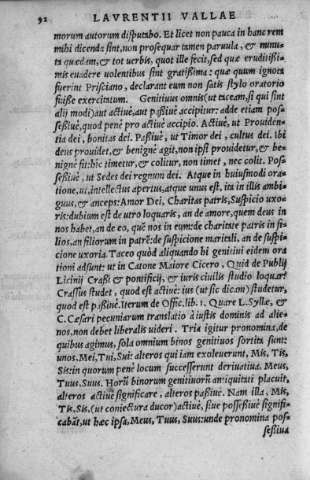 92 LAVRENTII VALLAE
morum autorum disputabo. Et licet non pauca in hanc rem
mihi dicenda sint, non prosequar tamen paruula, & minu-
ta quædam, & tot uerbis, quot ille fecit, sed quæ eruditissi-
mis euadere uolentibus sint gratissima: quæ quum ignota
fuerint Prisciano, declarant eum non satis stylo oratorio
fuisse exercitatum. Genitiuus omnis (ut taceam, si qui sint
alij modi) aut actiuè, aut passiuè accipitur: adde etiam pos-
sessiuè, quod penè pro actiuè accipio. Actiuè, ut Prouiden-
tia dei, bonitas dei. Passiuè, ut Timor dei, cultus dei. Ibi
deus prouidet, & benignè agit, non ipsi prouidetur, & be-
nignè fit: hic timetur, & colitur, non timet, nec colit. Pos-
sessiuè, ut Sedes dei regnum dei. Atque in huiusmodi ora-
tione, ut, intellectus apertus, atque unus est, ita in illis ambi-
guus, & anceps: Amor Dei, Charitas patris, Suspicio uxo-
ris: dubium est de utro loquaris, an de amore, quem deus in
nos habet, an de eo, quē nos in eum: de charitate patris in fi-
lios, an filiorum in patrē: de suspicione mariti, an de suspi-
cione uxoria. Taceo quòd aliquando bi genitiui eidem ora
tioni adsunt: ut in Catone Maiore Cicero. Quid de Publij
Licinij Crassi & pontificij, & iuris ciuilis studio loquar?
Crassus studet, quod est actiuè: ius (ut sic dicam) studetur,
quod est passiuè. Iterum de Offic. lib. 1. Quare L. Syllæ, &
C. Cæsari pecuniarum translatio à iustis dominis ad alie-
nos, non debet liberalis uideri. Tria igitur pronomina, de
quibus agimus, sola omnium binos genitiuos sortita sunt:
unos, Mei, Tui, Sui: alteros qui iam exoleuerunt, Mis, Tis,
Sis: in quorum penè locum successerunt deriuatiua. Meus,
Tuus, Suus. Horū binorum genitiuorū antiquitati placuit,
alteros actiuè significare, alteros passiuè. Nam illa, Mis,
Tis, Sis, (ut coniectura ducor) actiuè, siue possessiuè signifi-
cabāt, ut hæc ipsa, Meus, Tuus, Suus: unde pronomina pos-
sessiua